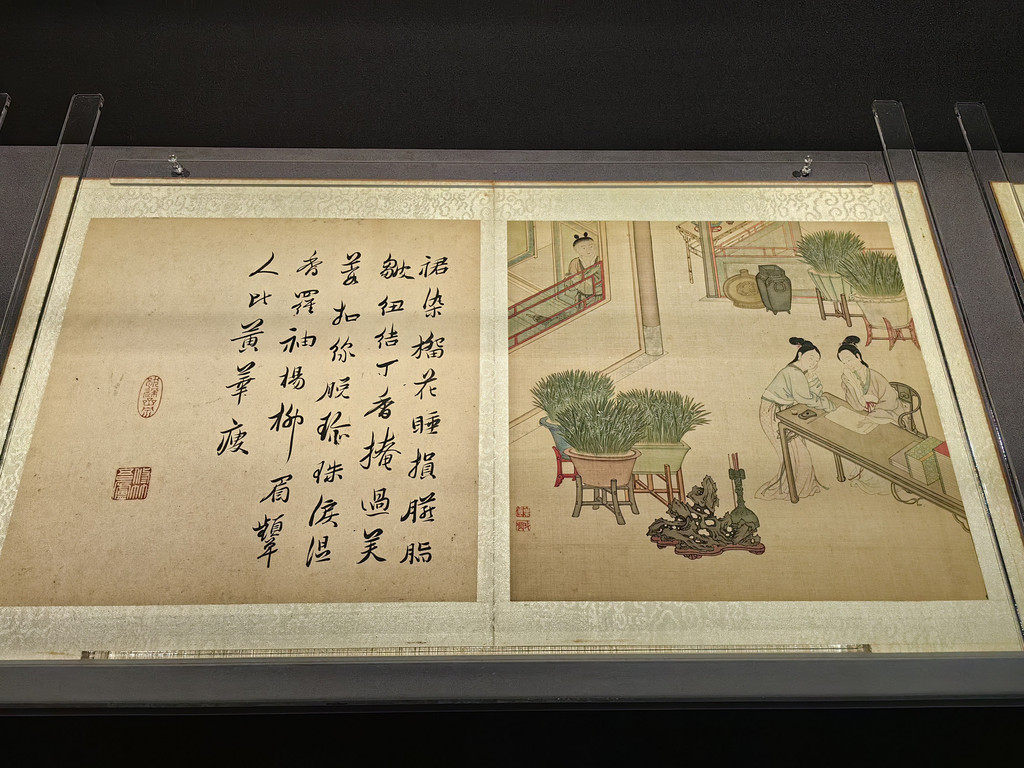 裙染榴花睡損臙脂
皺紐結丁香掩過芙
蓉扣線脫珍珠淚湿
香羅袖楊柳眉顰
人比黃華瘦